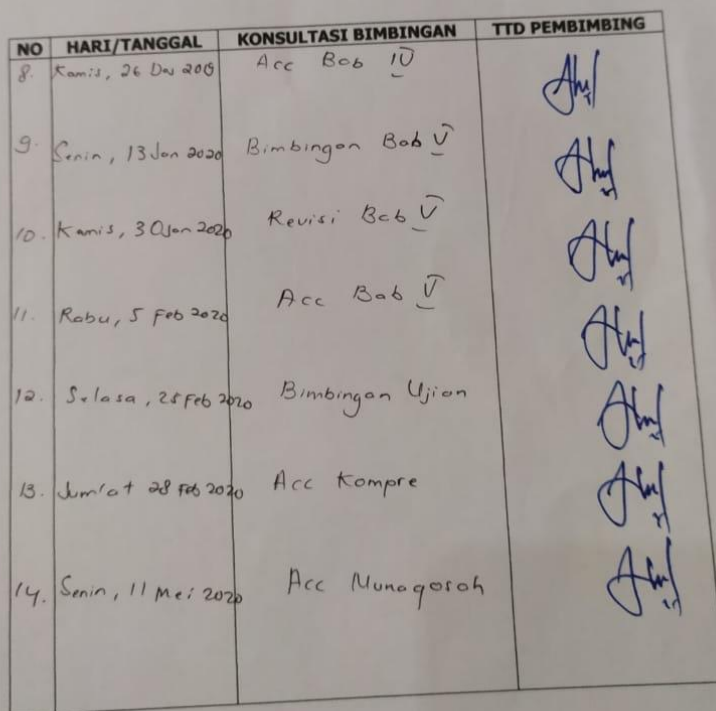 NO HARI/TANGGAL KONSULTASI BIMBINGAN TTD PEMBIMBING
8. Kamis, 26 Des 2019 Acc Bab IV
9. Senin, 13 Jan 2020 Bimbingan Bab V
10. Kamis, 30 Jan 2020 Revisi Bab V
11. Rabu, 5 Feb 2020 Acc Bab V
12. Selasa, 25 Feb 2020 Bimbingan Ujian
13. Jum'at 28 Feb 2020 Acc Kompre
14. Senin, 11 Mei 2020 Acc Munaqosah